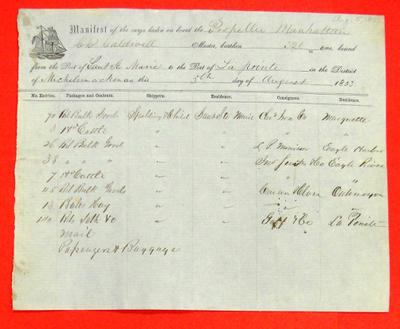 Manifest of the cargo laden on board the Propeller Manhattan
Caldwell Master, burthen 320 tons bound
from the Port of Sault Ste Marie to the Port of La Pointe in the District
of Michilimackinac this 5th day of August 1853
No. Entries. Packages and Contents. Shippers. Residence. Consignees. Residence.
70 Bbl Bulk Goods Spalding & Child Sault Ste Marie Iron Co Marquette
8 Cattle
26 Bbl Bulk Good Eagle Harbor
38 " " Eagle River
7 Cattle
115 Bbl Bulk Goods Ontonagon
13 Bales Hay
140 Bbls Salt &c & Co La Pointe
Mail
Passengers Baggage